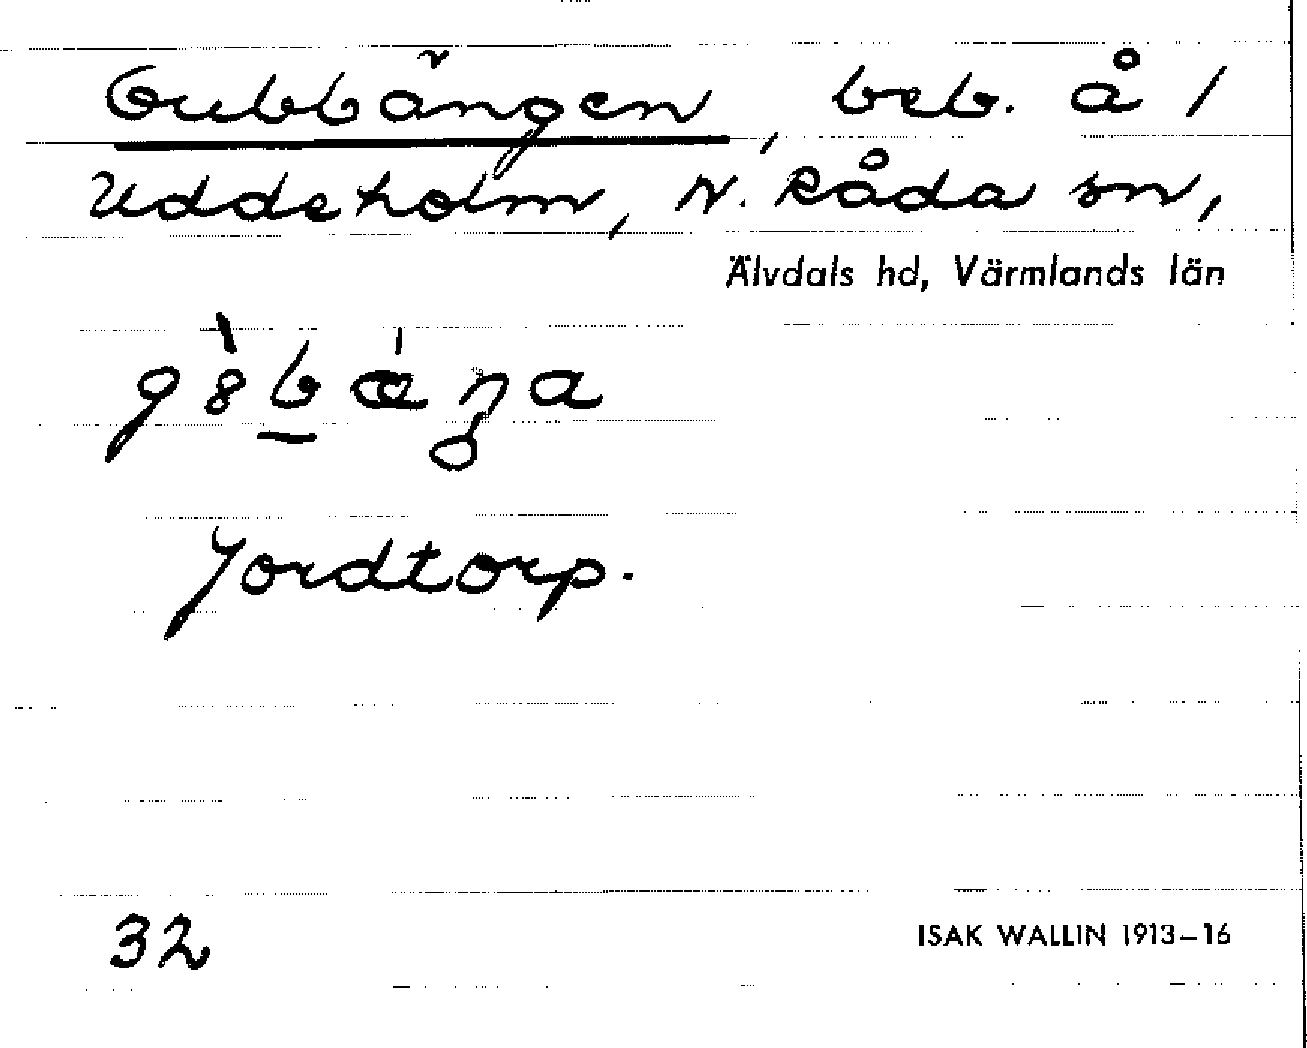 Gubbängen, beb. å 1
Uddeholm, N. Råda sn,
Älvdals hd, Värmlands län
Jordtorp.
32
ISAK WALLIN 1913–16